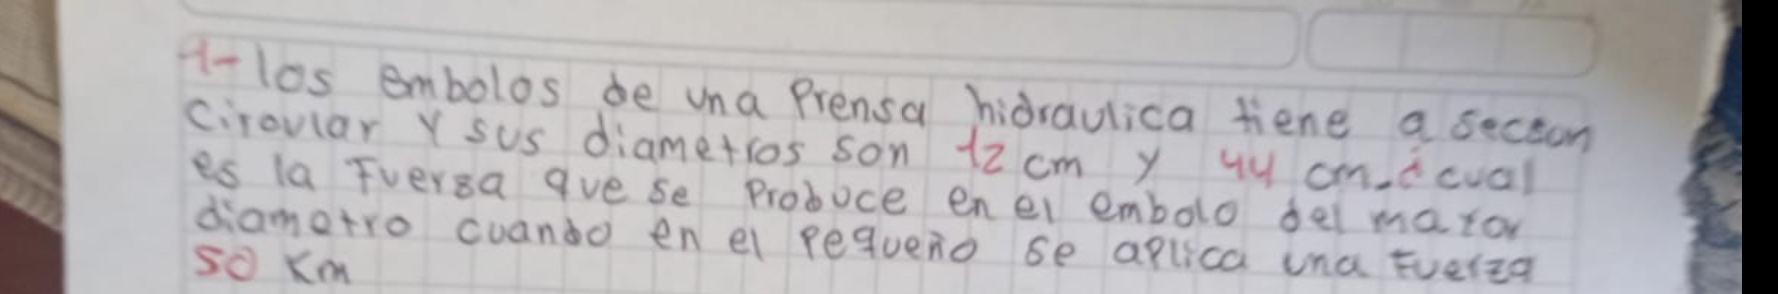 1- los embolos de una Prensa hidraulica tiene a seccon
Circular Y sus diametros son 12 cm y 44 cm. ¿cual
es la Fuersa que se Produce en el embolo del mayor
diametro cuando en el Pequeño se aplica una Fuerza
50 Km